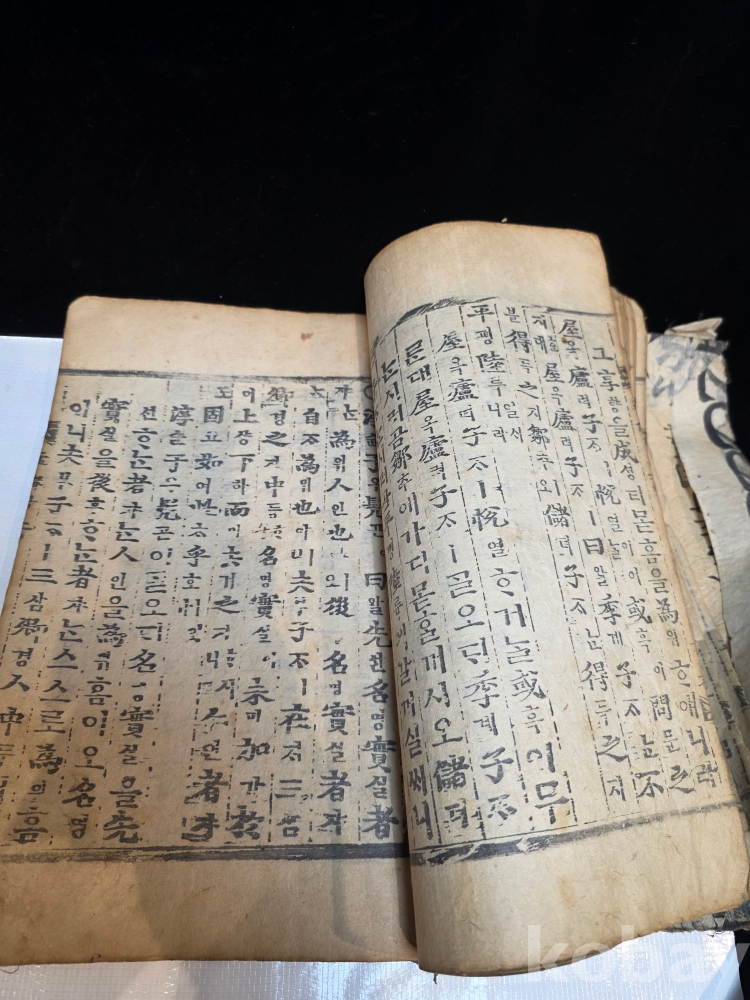 ㅣ享향을成셩티몯홈을爲위ᄒᆞ얘니라
屋옥廬려子ᄌᆞㅣ悅열이어늘或혹이問문之
지대屋옥廬려子ᄌᆞㅣ曰왈季계子ᄌᆞᄂᆞᆫ不
블得득之지鄒추오儲뎌子ᄌᆞᄂᆞᆫ得득之지
平평陸륙일ᄉᆡ니라
屋옥廬려子ᄌᆞㅣ悅열ᄒᆞ거늘或혹이무
른대屋옥廬려子ᄌᆞㅣᄀᆞᆯ오ᄃᆡ季계子ᄌᆞ
ᄂᆞᆫ시러곰鄒추에가디몯ᄒᆞᆯ꺼시오儲뎌
갈꺼실ᄊᆡ니
髡곤曰왈先션名명實실者
쟈ᄂᆞᆫ爲위人인也야ㅣ오後후名명實실者쟈
ᄂᆞᆫ自ᄌᆞ爲위也야ㅣ니夫부子ᄌᆞㅣ在ᄌᆡ三삼
卿경之지中듕名명實실이未미加가於
어上샹下하而이去거之지仁인者쟈
도固고如여此ᄎᆞ乎호잇가
淳슌于우髡곤이ᄀᆞᆯ오ᄃᆡ名명實실을先
션ᄒᆞᄂᆞᆫ者쟈ᄂᆞᆫ人인을爲위홈이오名명
實실을後후ᄒᆞᄂᆞᆫ者쟈ᄂᆞᆫ스스로爲위홈
이니夫부子ᄌᆞㅣ三삼卿경人中듕
kobay